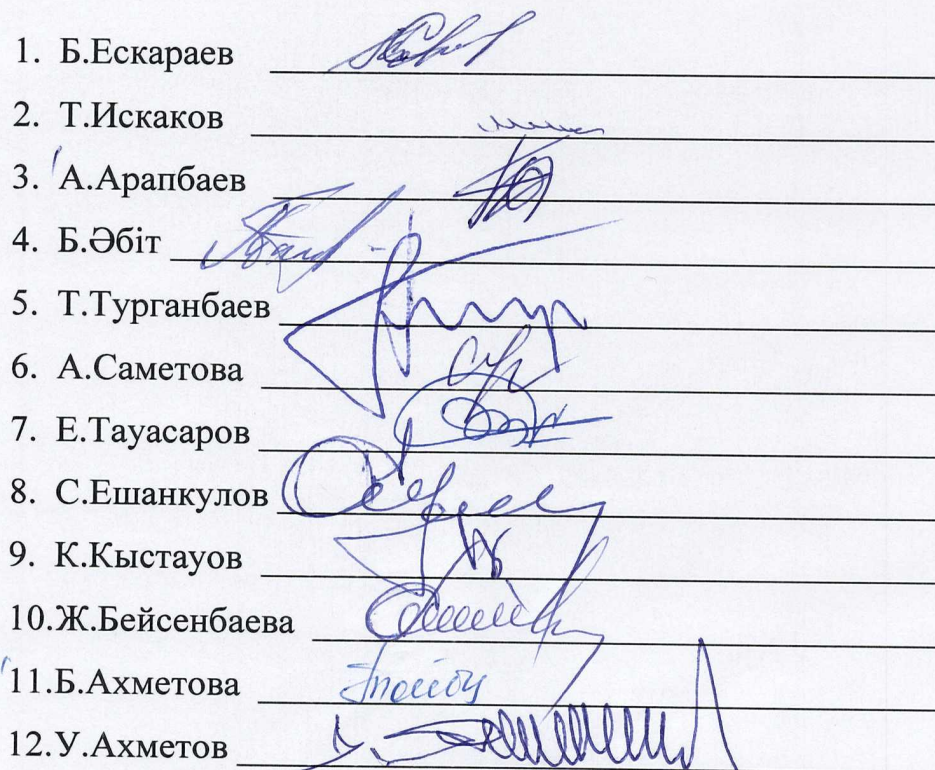 1. Б.Ескараев
2. Т.Искаков
3. А.Арапбаев
4. Б.Әбіт
5. Т.Турганбаев
6. А.Саметова
7. Е.Тауасаров
8. С.Ешанкулов
9. К.Кыстауов
10.Ж.Бейсенбаева
11.Б.Ахметова
12.У.Ахметов